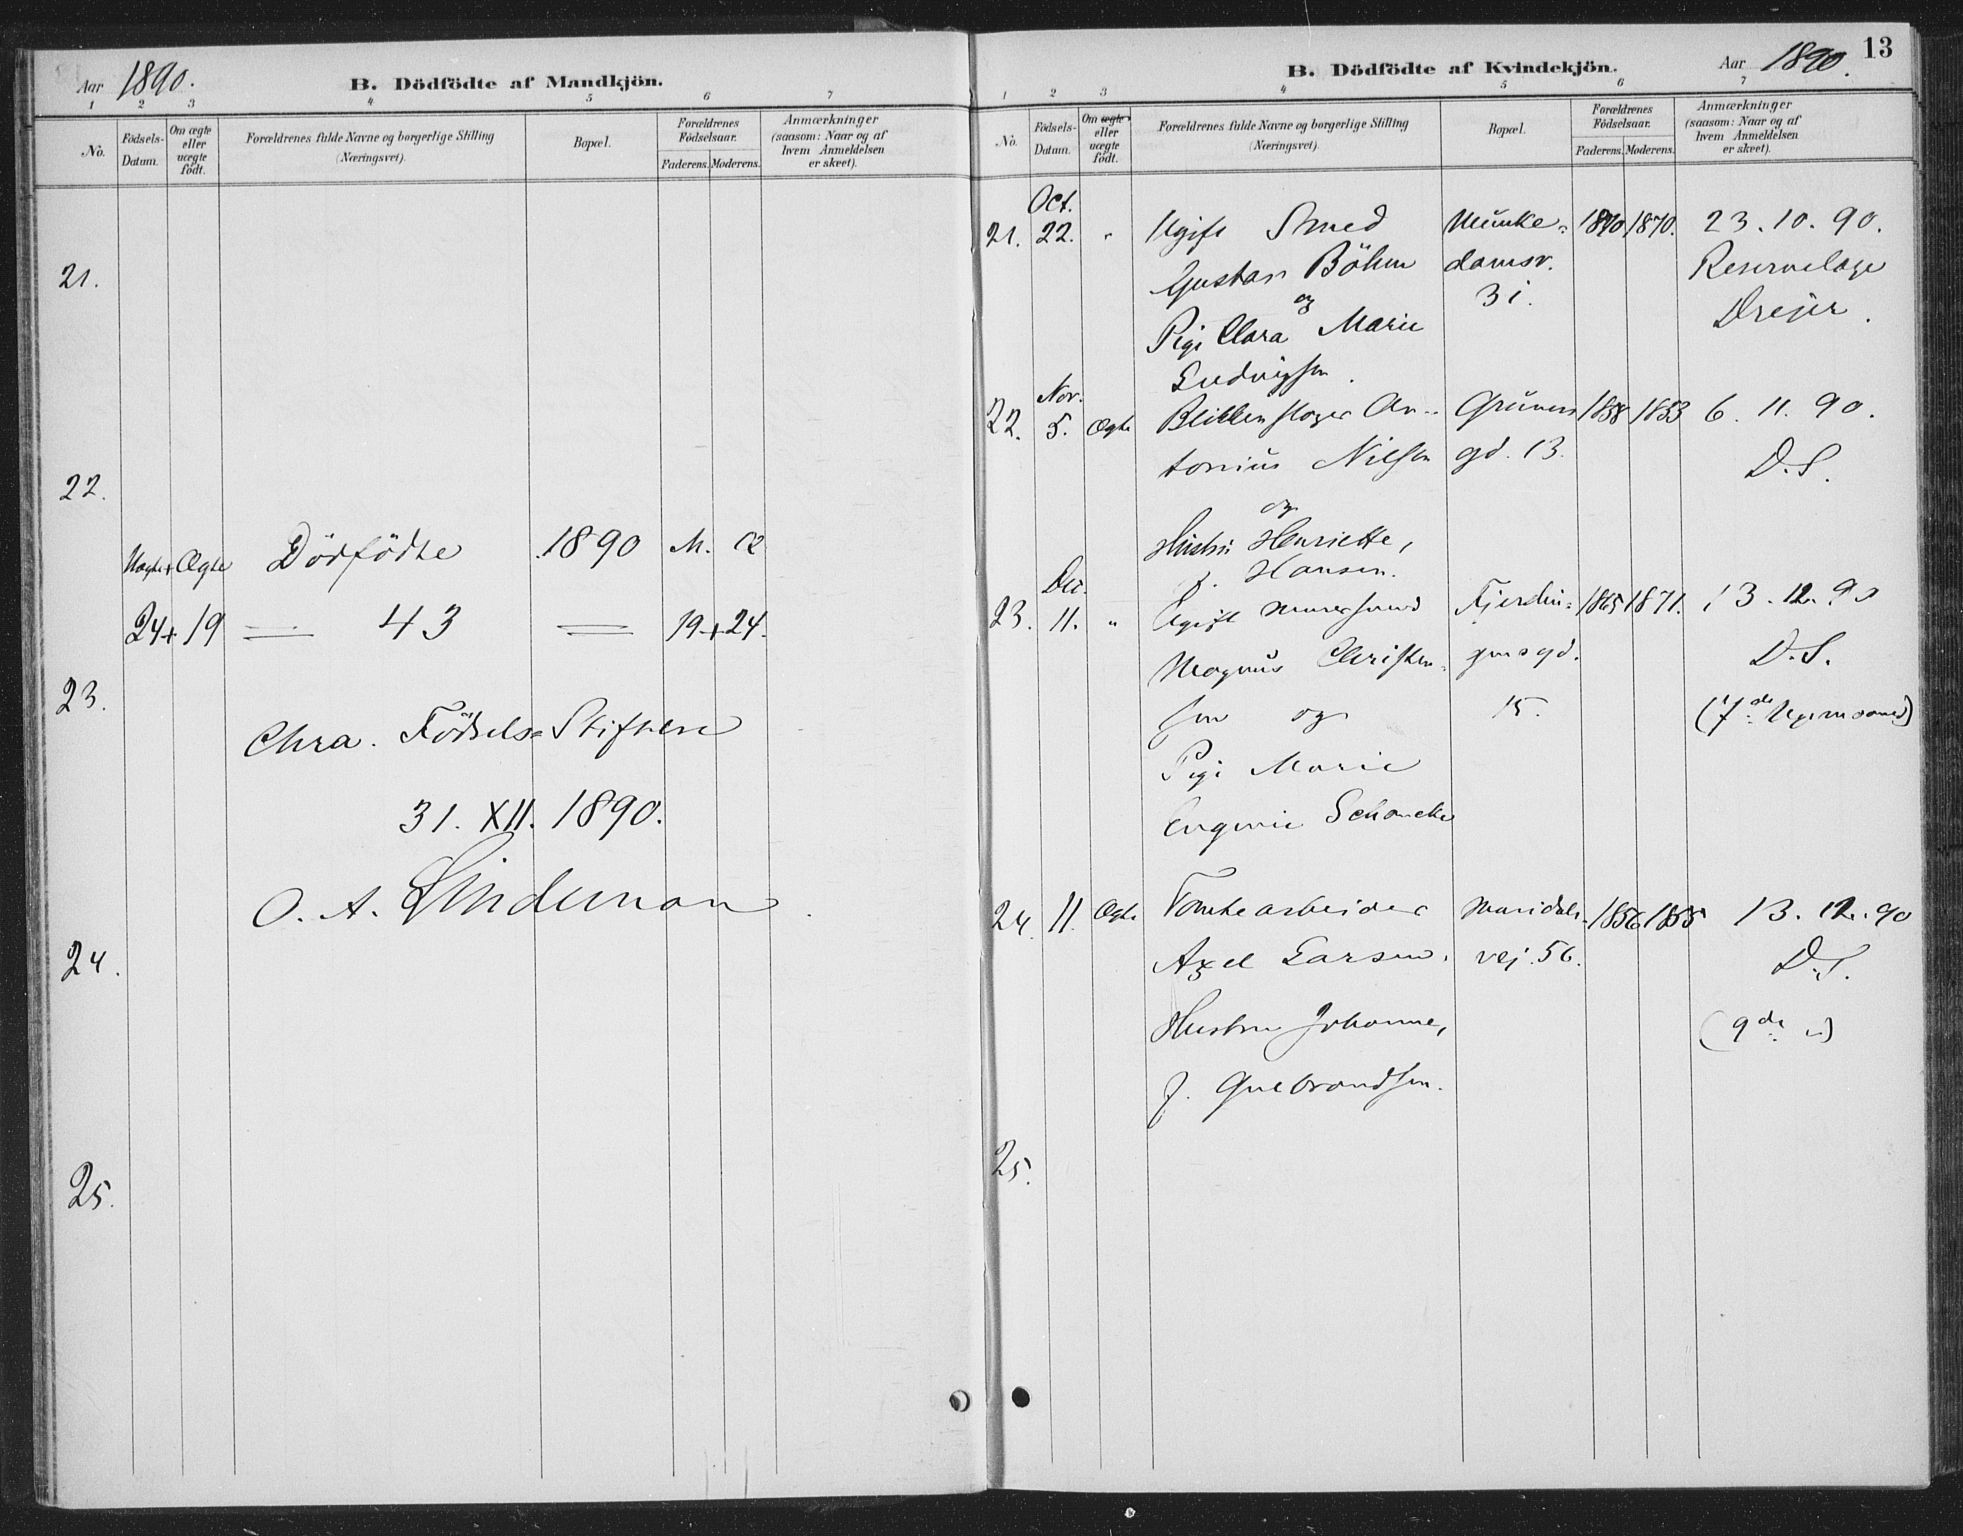 Aar 1890.
B. Dödfödte af Mandkjön.
1 2 3 4 5 6 7
No.
Födsels-Datum.
Om ægte eller uægte födt.
Forældrenes fulde Navne og borgerlige Stilling (Næringsvei).
Bopæl.
Forældrenes Födselsaar.
Faderens. Moderens.
Anmærkninger (saasom: Naar og af hvem Anmeldelsen er skeet).
21.
22.
Uægte + Ægte Dödfödte 1890 M.
24 + 19 = 43 = 19 + 24.
23.
Chra. Födsels-Stiftelse
31. XII. 1890.
O. A. Lindeman
24.
25.
13
B. Dödfödte af Kvindekjön.
Aar 1890.
1 2 3 4 5 6 7
No.
Födsels-Datum.
Om ægte eller uægte födt.
Forældrenes fulde Navne og borgerlige Stilling (Næringsvei).
Bopæl.
Forældrenes Födselsaar.
Faderens. Moderens.
Anmærkninger (saasom: Naar og af hvem Anmeldelsen er skeet).
Oct.
21. 22. " Ugift Smed Munke- 1870. 23.10.90.
Gustav Böhm damsv. Reservelæge
og 31. Dreyer.
Pige Clara Marie
Ludvigsen.
Nov.
22. 5. Ægte Blikkenslager An- Grüners 1858 1853 6. 11. 90.
tonius Nilsen gd. 13. D.S.
og
Hustru Henriette,
f. Hansen.
Dec.
23. 11. " Ugift Murersvend Fjerdin- 1865 1871. 13.12.90
Magnus Christen- gensgd. D.S.
sen og 15. (7de
Pige Marie
Eugenie Schancke
24. 11. Ægte Tomtearbeider Maridals- 1856 1855 13. 12. 90
Axel Larsen. vej. 56. D.S.
Hustru Johanne, (9de ")
f. Gulbrandsen.
25.